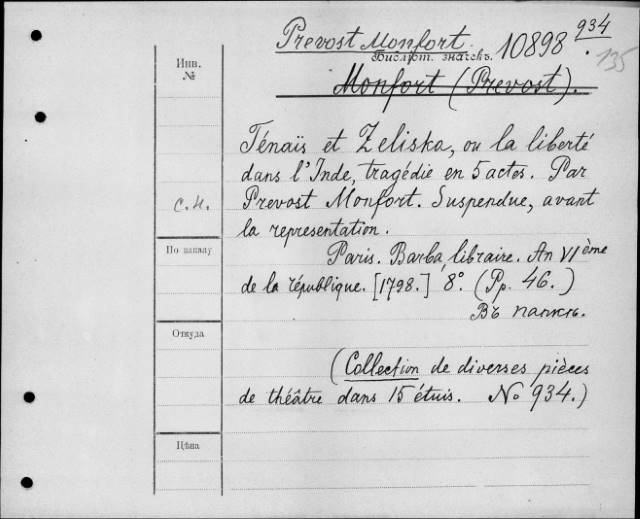 Prevost Monfort. 10898. 934
135
Библіот. значекъ.
Monfort (Prevost).
Инв.
№
Ténaïs et Zeliska, ou la liberté
dans l'Inde, tragédie en 5 actes. Par
с.н. Prevost Monfort. Suspendue, avant
la representation.
По каталу
Paris. Barba, libraire. An VI ème
de la république. [1798.] 8º. (Pp. 46.)
Въ папкѣ.
Откуда
(Collection de diverses pièces
de théâtre dans 15 étuis. No 934.)
Цѣна